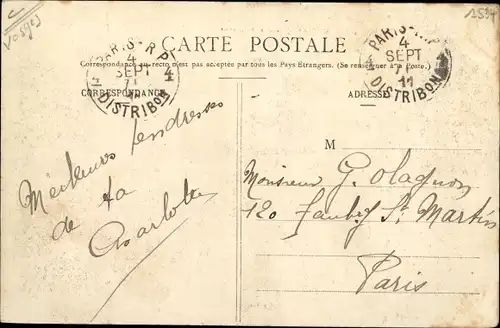 Vosges
CARTE POSTALE
Correspondance au recto n'est pas acceptée par tous les Pays Étrangers. (Se renseigner à la Poste.)
CORRESPONDANCE
ADRESSE
PARIS-R.P.
4
SEPT
11
DISTRIBON
PARIS-R.P.
4
SEPT
11
DISTRIBON
Meilleures tendresses
de ta
Charlotte
M
Monsieur G. Olagnon
120 Faubg St Martin
Paris